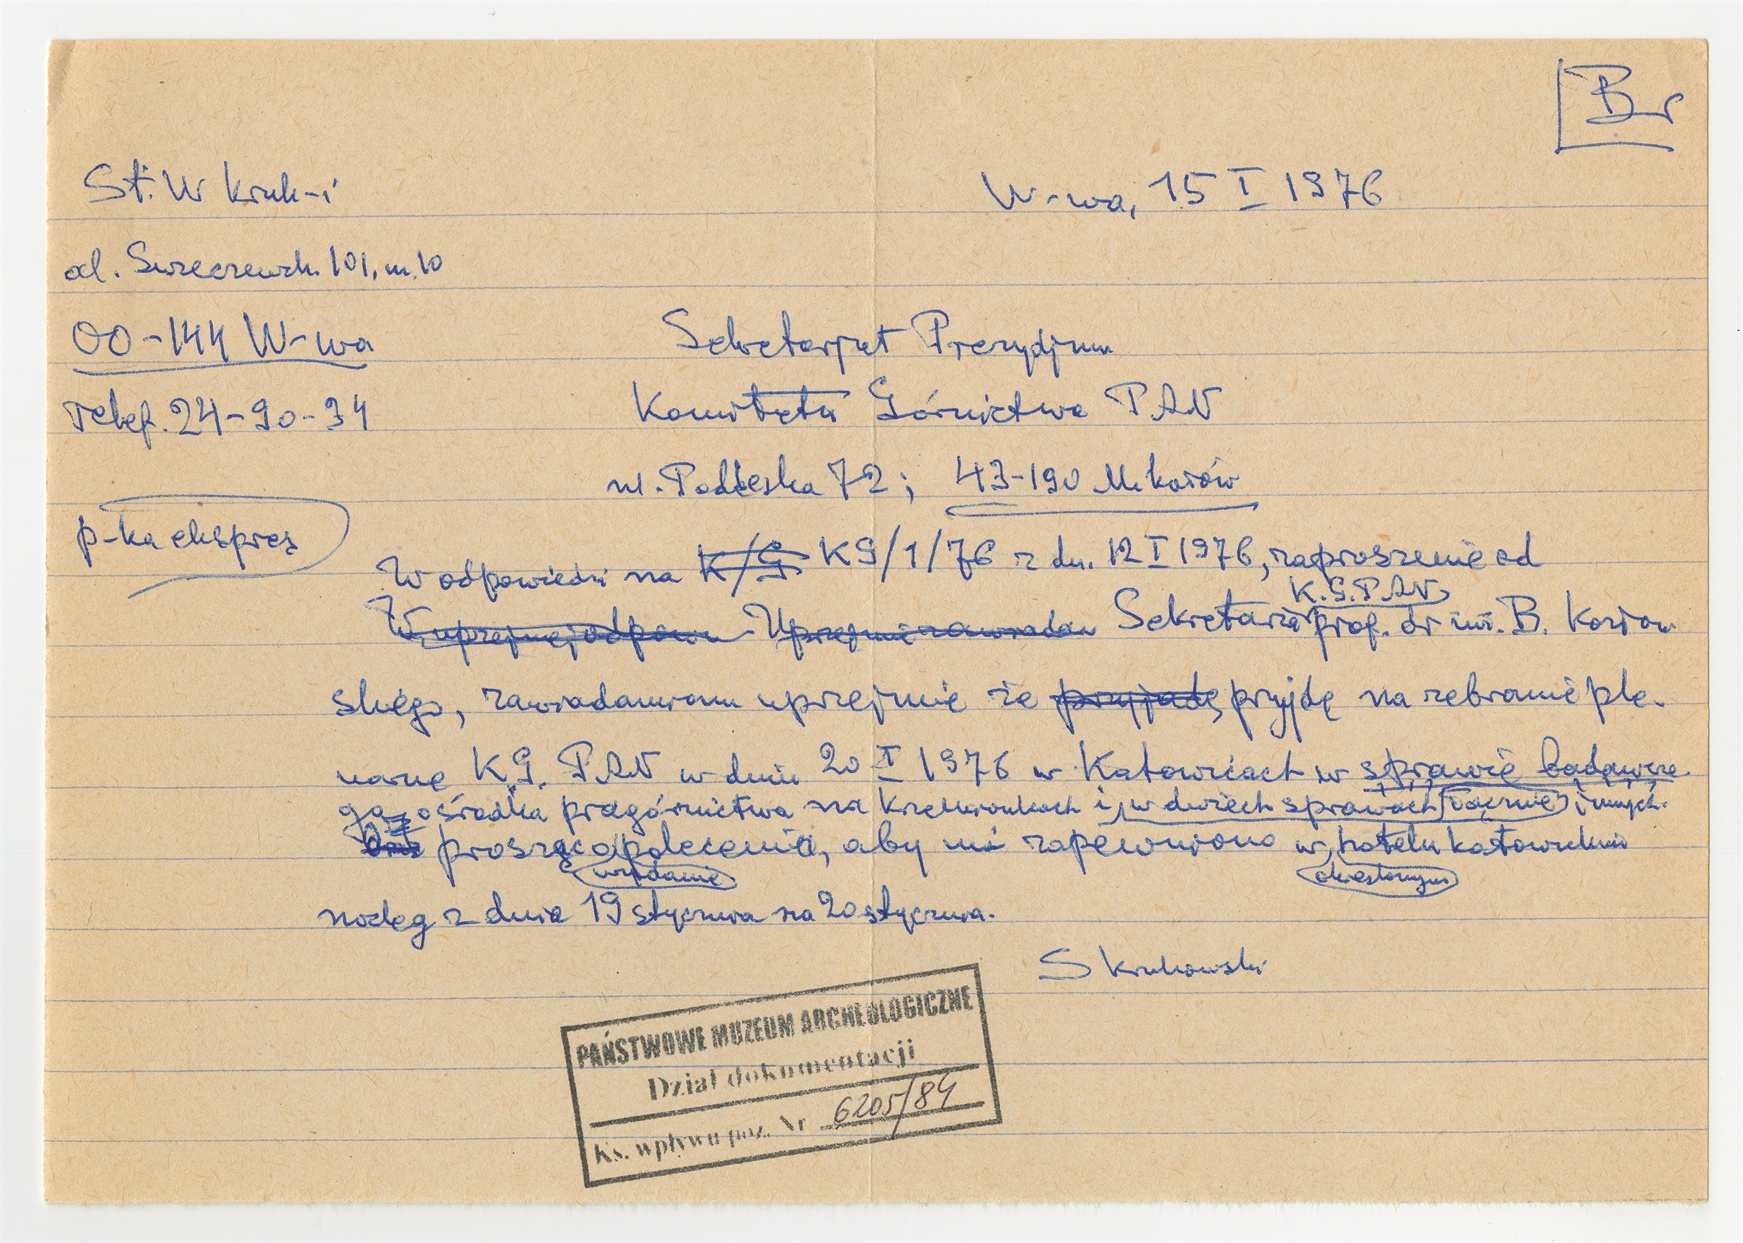 Br
St. W Kruk-i
W-wa, 15 I 1976
al. Świerczewsk. 101, m. 10
00-144 W-wa
Sekretarjat Prezydjum
Telef. 24-90-34
Komitetu Górnictwa PAN
ul. Podleska 72; 43-190 Mikołów
p-ka ekspres
W odpowiedzi na K/G KG/1/76 z dn. 12 I 1976, zaproszenie od
K.G.PAN
W uprzejmej odpow Uprzejmie zawiadam Sekretarza prof. dr inż. B.
skiego, zawiadamiam uprzejmie że przyjadę przyjdę na zebranie ple-
narne KG. PAN w dniu 20 I 1976 w Katowicach w sprawie badawcze
go ośrodka pragórnictwa na Krzemionkach i w dwiech sprawach łącznie innych.
prosząc o polecenia, aby mi zapewniono w hotelu katowickim
wydanie określonym
nocleg z dnia 19 stycznia na 20 stycznia.
S Krukowski
PAŃSTWOWE MUZEUM ARCHEOLOGICZNE
Dział dokumentacji
Ks. wpływu poz. Nr 6205/84